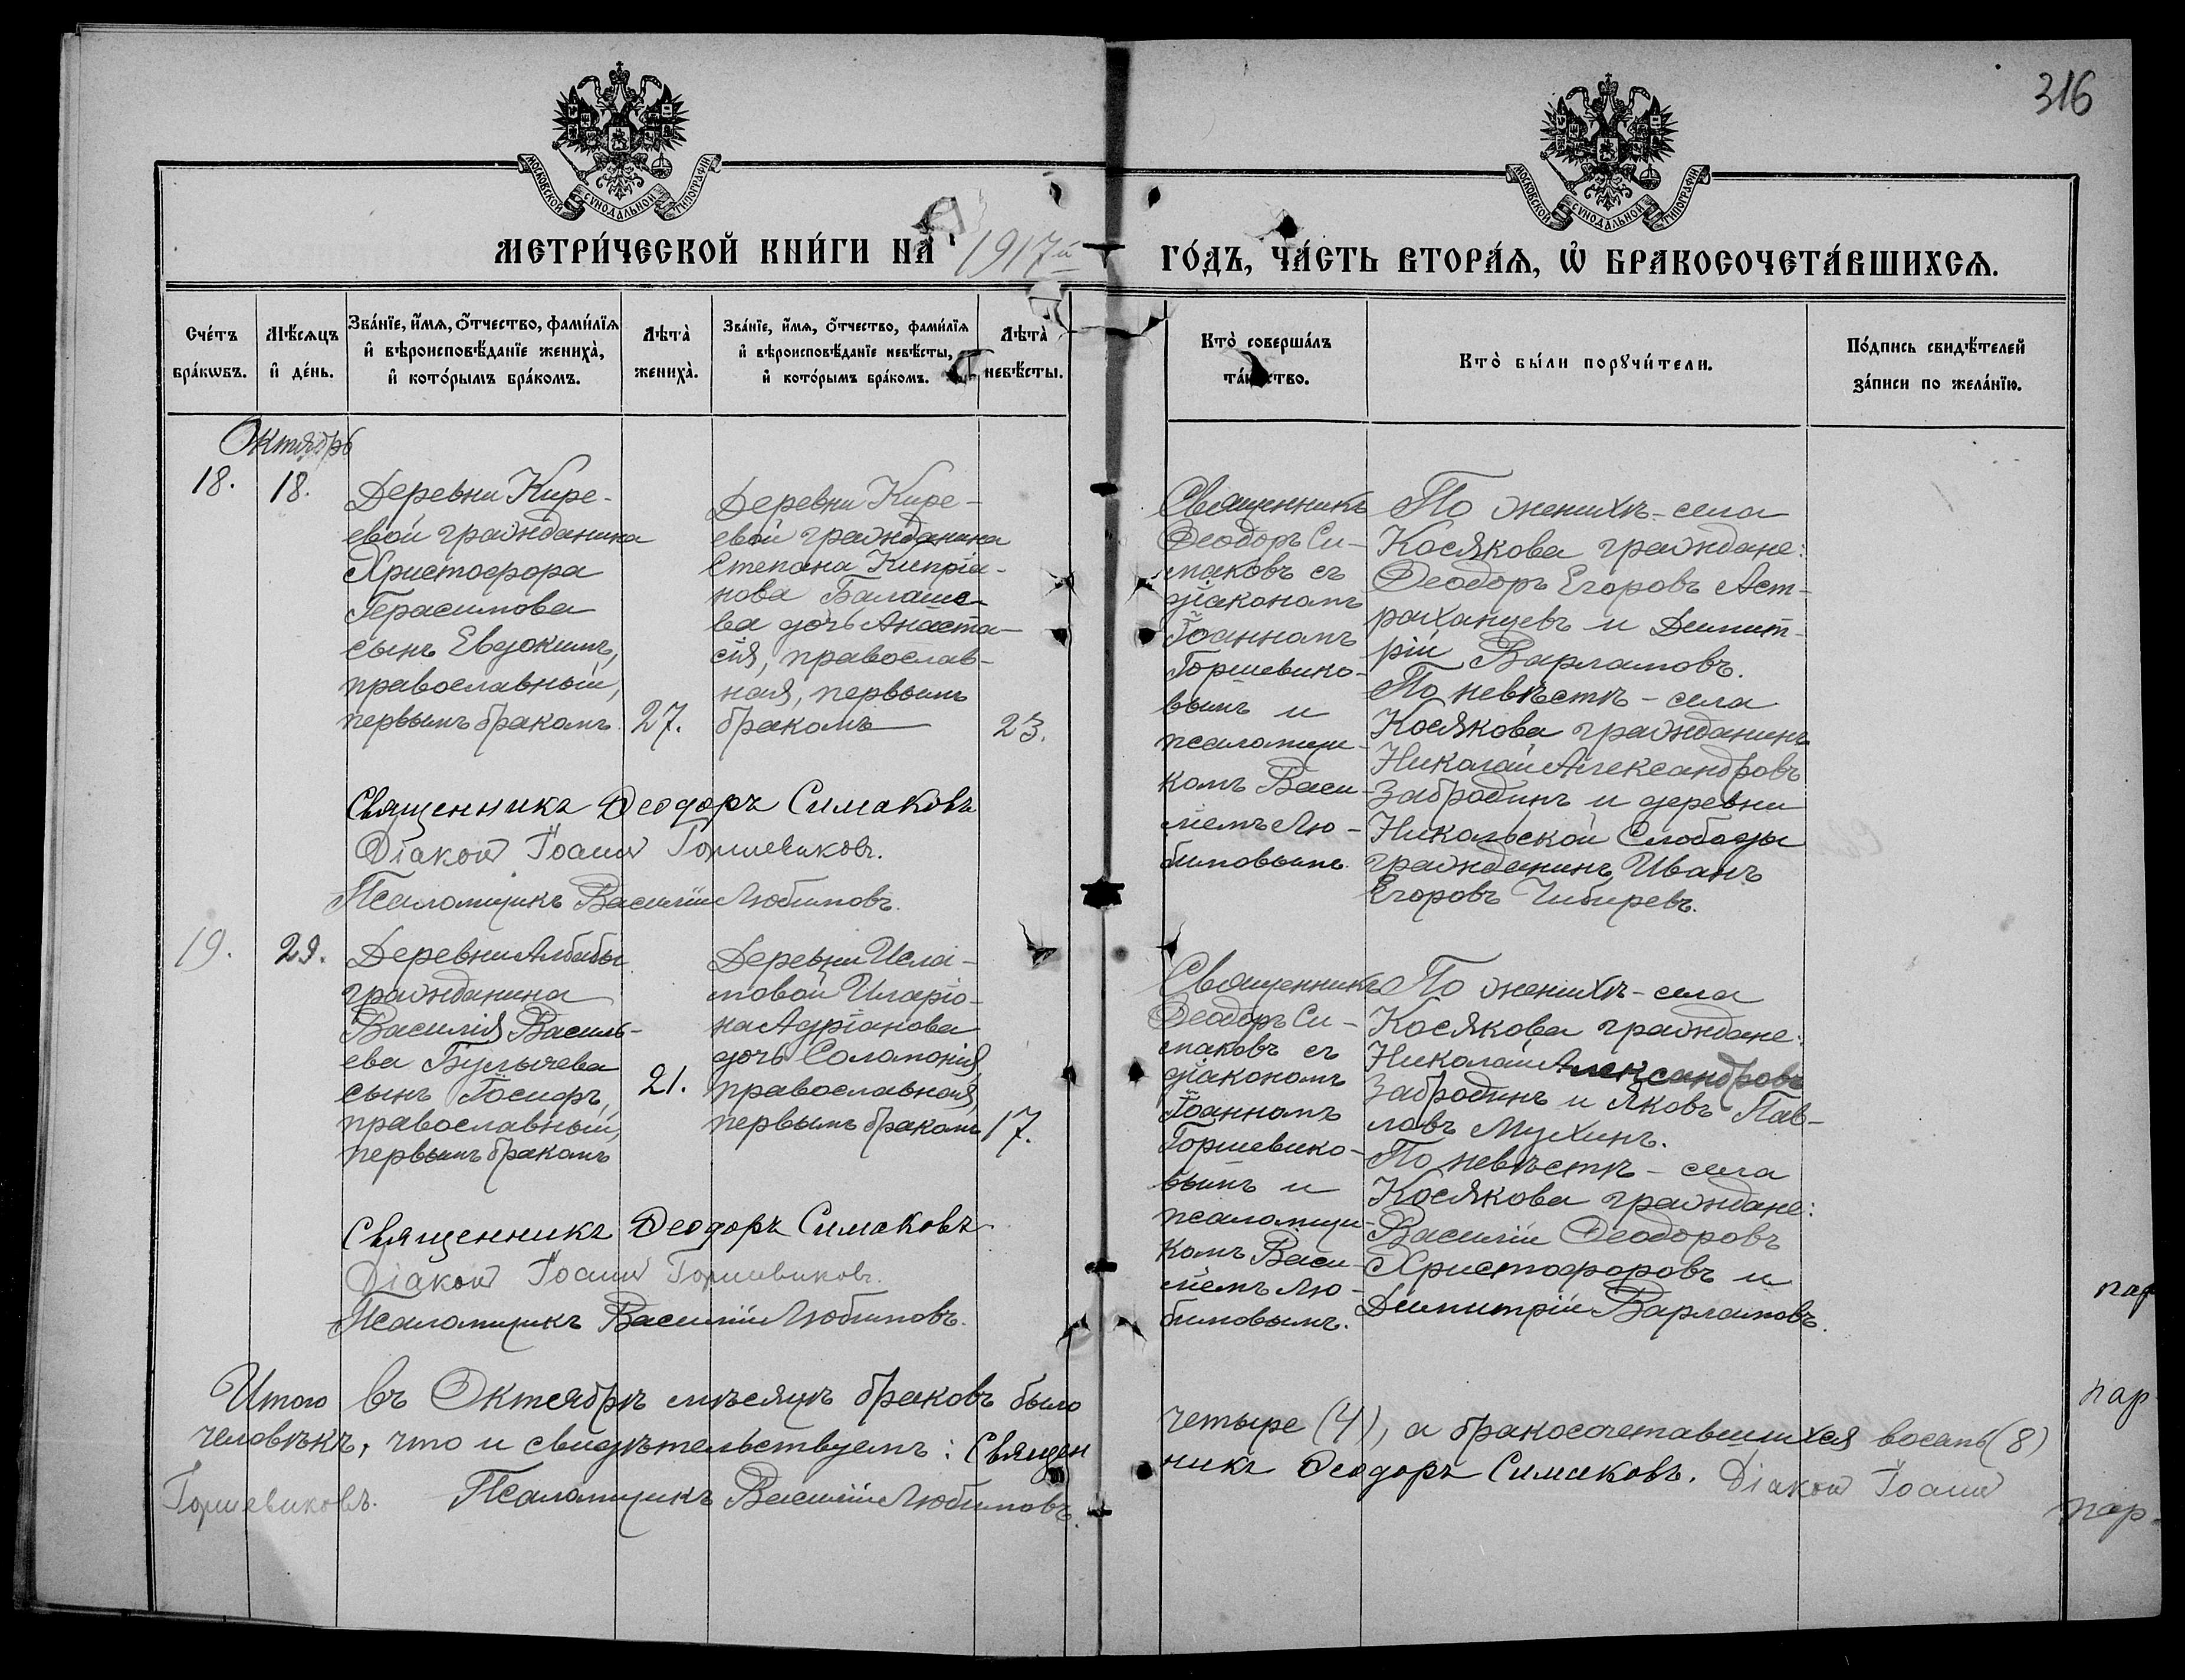 316
МОСКОВСКОЙ СѴНОДАЛЬНОЙ ТИПОГРАФІИ
МОСКОВСКОЙ СѴНОДАЛЬНОЙ ТИПОГРАФІИ
МЕТРИ́ЧЕСКОЙ КНИ́ГИ НА 1917й
ГО́ДЪ, ЧА́СТЬ ВТОРА́Ѧ, Ѡ҆ БРАКОСОЧЕТА́ВШИХСѦ.
Сче́тъ
бра́кѡвъ.
Мѣ́сѧцъ
и҆ де́нь.
Зва́нїе, и҆́мѧ, ѻ҆́тчество, фами́лїѧ
и҆ вѣроисповѣ́данїе жениха̀,
и҆ кото́рымъ бра́комъ.
Лѣта̀
жениха̀.
Зва́нїе, и҆́мѧ, ѻ҆́тчество, фами́лїѧ
и҆ вѣроисповѣ́данїе невѣ́сты,
и҆ кото́рымъ бра́комъ.
Лѣта̀
невѣ́сты.
Кто̀ соверша́лъ
та́инство.
Кто̀ бы́ли порꙋчи́тели.
По́дпись свидѣ́телей
за́писи по жела́нїю.
Октябрь
18.
18.
Деревни Кире-
евой гражданина
Христофора
Герасимова
сынъ Евдокимъ,
православный,
первымъ бракомъ
27.
Деревни Кире-
евой гражданина
Степана Кипріа-
нова Балаше-
ва дочь Анаста-
сія, православ-
ная, первымъ
бракомъ
23.
Священникъ
Ѳеодоръ Си-
маковъ съ
діакономъ
Іоанномъ
Горшевико-
вымъ и
псаломщи-
комъ Васи-
ліемъ Лю-
бимовымъ.
По женихѣ - села
Косякова граждане:
Ѳеодоръ Егоровъ Аст-
раханцевъ и Димит-
рій Варламовъ.
По невѣстѣ - села
Косякова гражданинъ
Николай Александровъ
Забродинъ и деревни
Никольской Слободы
гражданинъ Иванъ
Егоровъ Чибиревъ.
Священникъ Ѳеодоръ Симаковъ
Діаконъ Іоаннъ Горшевиковъ.
Псаломщикъ Василій Любимовъ.
19.
29.
Деревни Албабы
гражданина
Василія Василь-
ева Булычева
сынъ Іосифъ,
православный,
первымъ бракомъ
21.
Деревни Исла-
мовой Иларіо-
на Адріанова
дочь Соломонія,
православная,
первымъ бракомъ
17.
Священникъ
Ѳеодоръ Си-
маковъ съ
діакономъ
Іоанномъ
Горшевико-
вымъ и
псаломщи-
комъ Васи-
ліемъ Лю-
бимовымъ.
По женихѣ - села
Косякова граждане:
Николай Александровъ
Забродинъ и Яковъ Пав-
ловъ Мухинъ.
По невѣстѣ - села
Косякова граждане:
Василій Ѳеодоровъ
Христофоровъ и
Димитрій Варламовъ.
Священникъ Ѳеодоръ Симаковъ
Діаконъ Іоаннъ Горшевиковъ.
Псаломщикъ Василій Любимовъ.
Итого въ Октябрѣ мѣсяцѣ браковъ было четыре (4), а бракосочетавшихся восемь (8)
человѣкъ, что и свидѣтельствуемъ: Священникъ Ѳеодоръ Симаковъ. Діаконъ Іоаннъ
Горшевиковъ. Псаломщикъ Василій Любимовъ.
пар
пар
пар